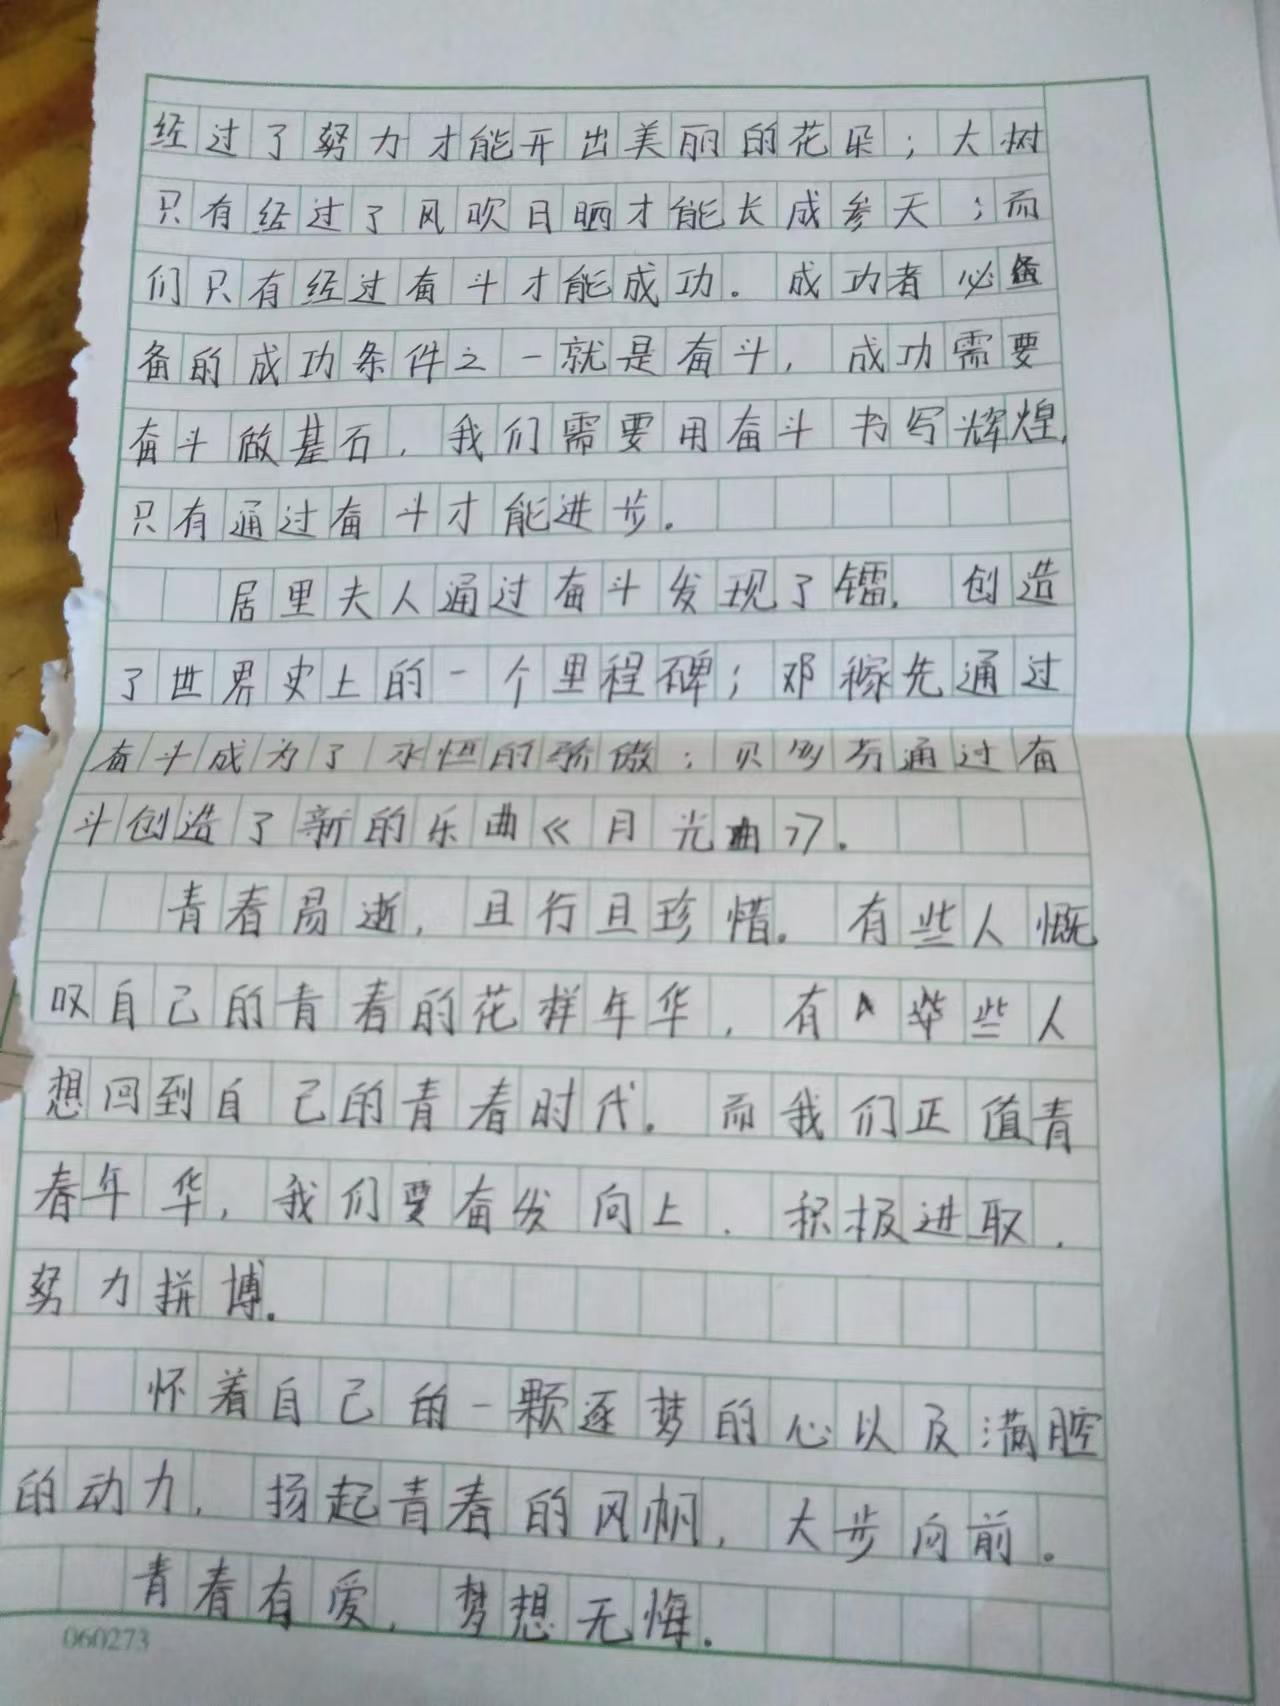 经过了努力才能开出美丽的花朵；大树
只有经过了风吹日晒才能长成参天；而
们只有经过奋斗才能成功。成功者必
备的成功条件之一就是奋斗，成功需要
奋斗做基石，我们需要用奋斗书写辉煌，
只有通过奋斗才能进步。
居里夫人通过奋斗发现了镭，创造
了世界史上的一个里程碑；邓稼先通过
奋斗成为了永恒的骄傲；贝多芬通过奋
斗创造了新的乐曲《月光曲》。
青春易逝，且行且珍惜。有些人慨
叹自己的青春的花样年华，有些人
想回到自己的青春时代。而我们正值青
春年华，我们要奋发向上，积极进取，
努力拼博。
怀着自己的一颗逐梦的心以及满腔
的动力，扬起青春的风帆，大步向前。
青春有爱，梦想无悔。
060273